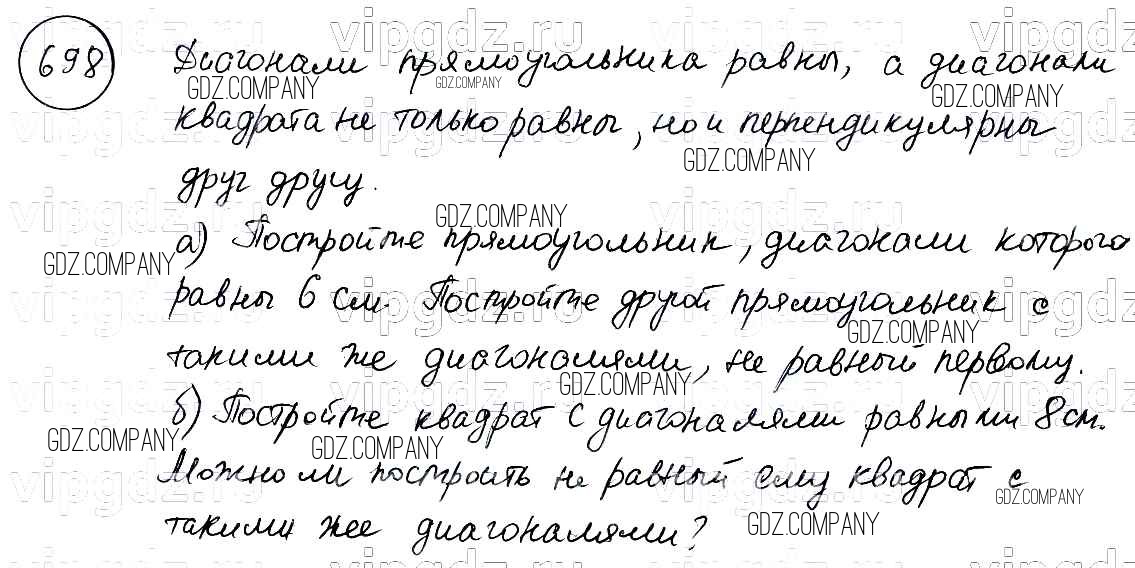 698 Диагонали прямоугольника равны, а диагонали
квадрата не только равны, но и перпендикулярны
друг другу.
а) Постройте прямоугольник, диагонали которого
равны 6 см. Постройте другой прямоугольник с
такими же диагоналями, не равный первому.
б) Постройте квадрат с диагоналями равными 8 см.
Можно ли построить не равный ему квадрат с
такими же диагоналями?
vipgdz.ru
GDZ.COMPANY